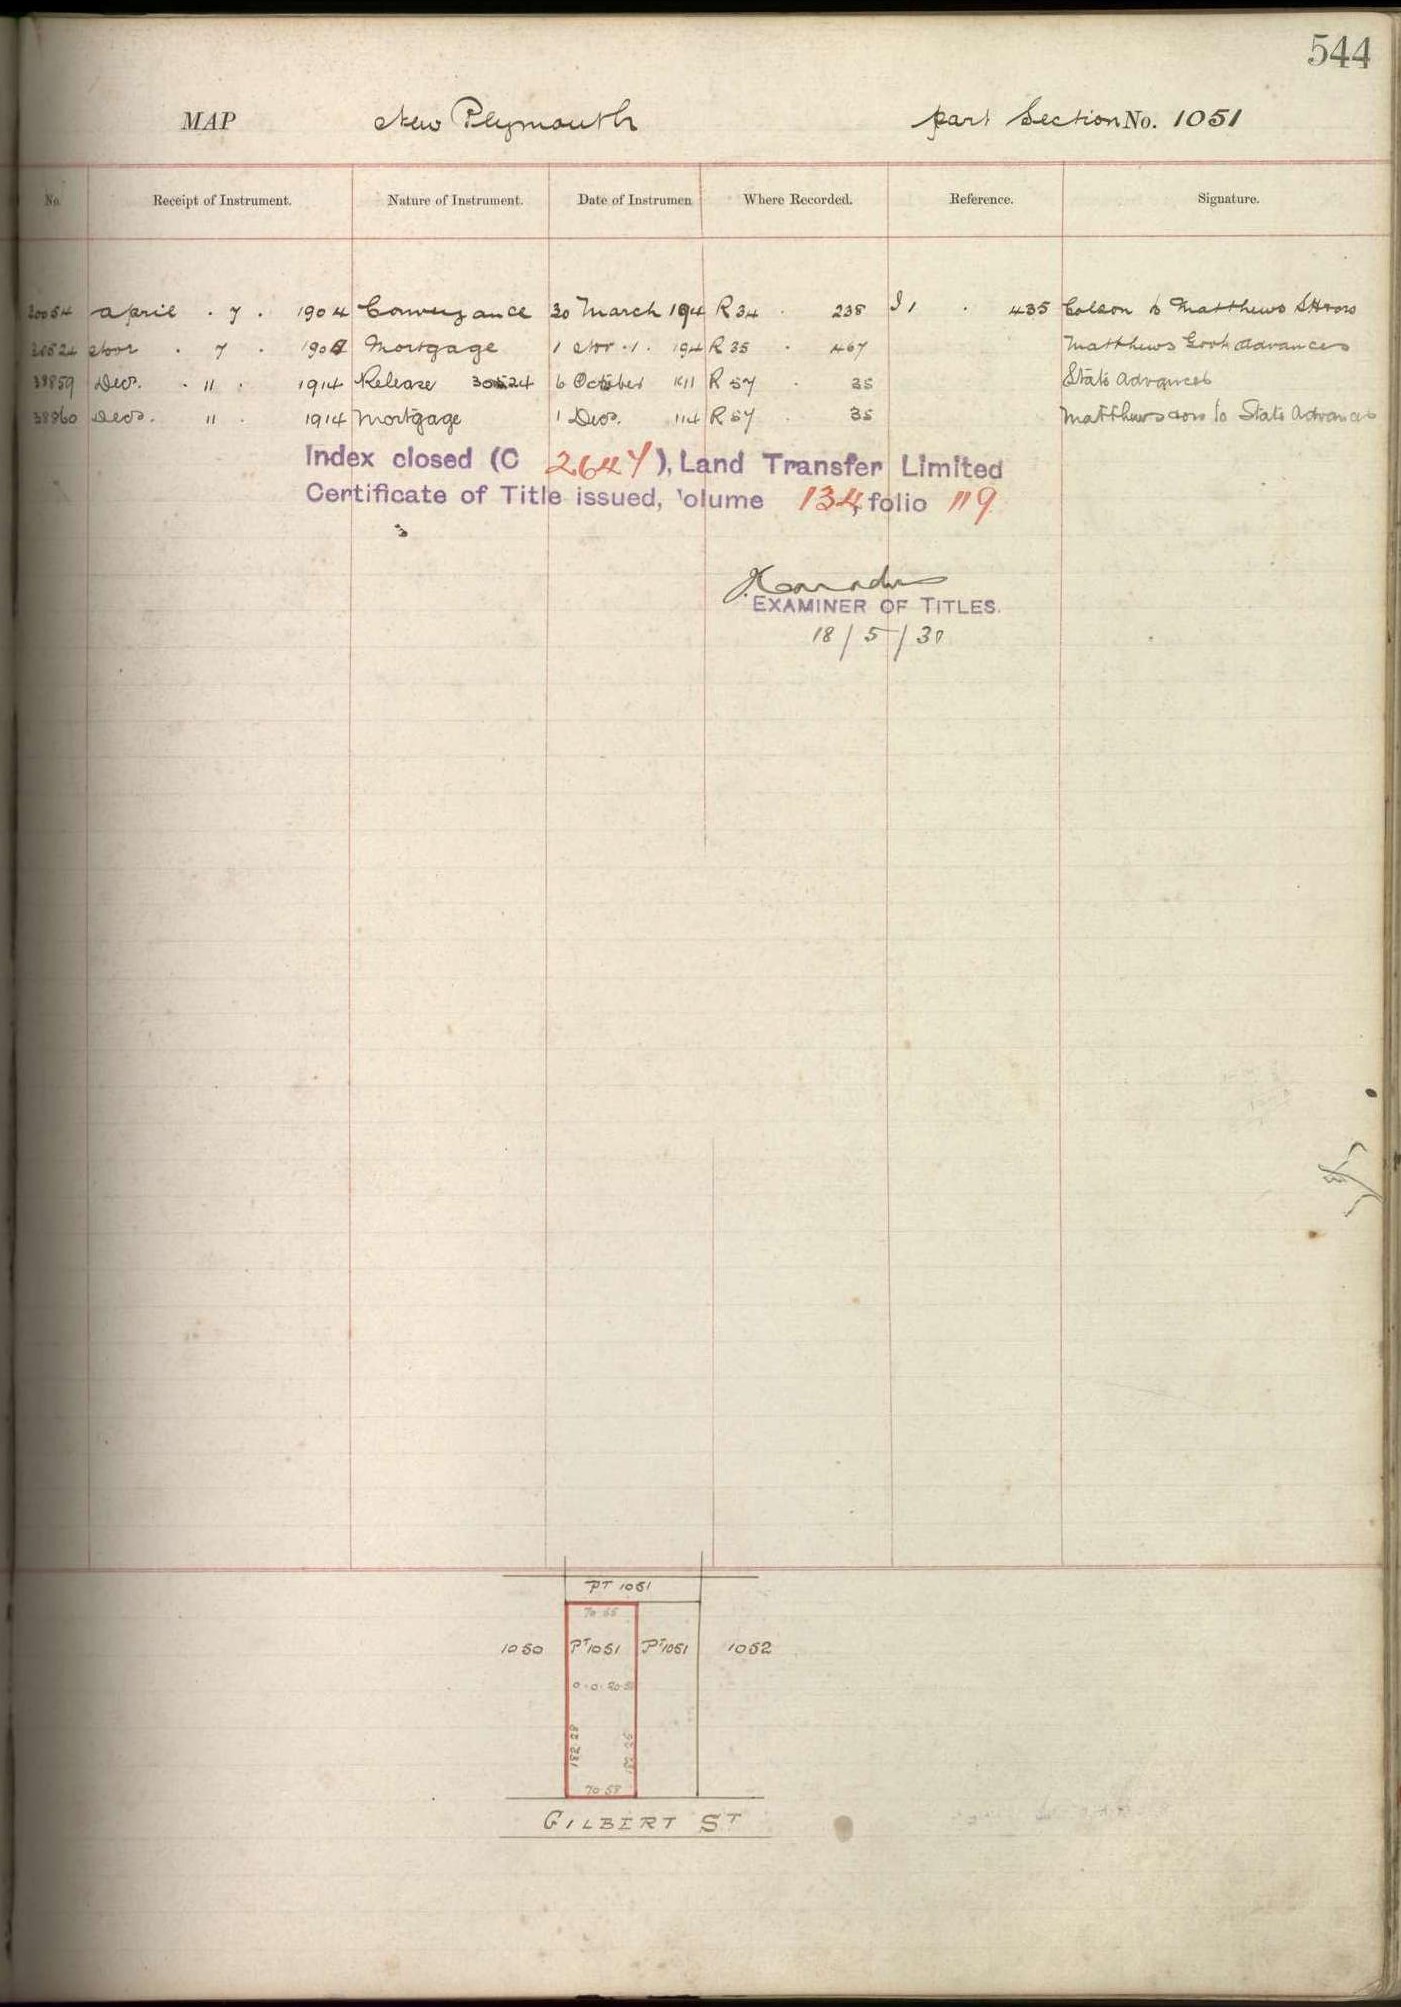 544
MAP New Plymouth part Section No. 1051
No. Receipt of Instrument. Nature of Instrument. Date of Instrumen Where Recorded. Reference. Signature.
April . 7 . 1904 Conveyance 30 March 194 R 34 . 238 I 1 . 435 Colson to Matthews
7 . Mortgage 1 194 R 35 . 467 Matthews Govt Advances
38859 Decr. . 11 . 1914 Release 6 October R 57 . 35 State Advances
38860 Decr. 11 . 1914 Mortgage 1 Decr. 114 R 57 . 35 Matthews to State Advances
Index closed (C 2647), Land Transfer Limited
Certificate of Title issued, Volume 134, folio 119
EXAMINER OF TITLES.
18/5/30
PT 1051
1050 PT 1051 PT 1051 1052
182.28
70.58
GILBERT ST